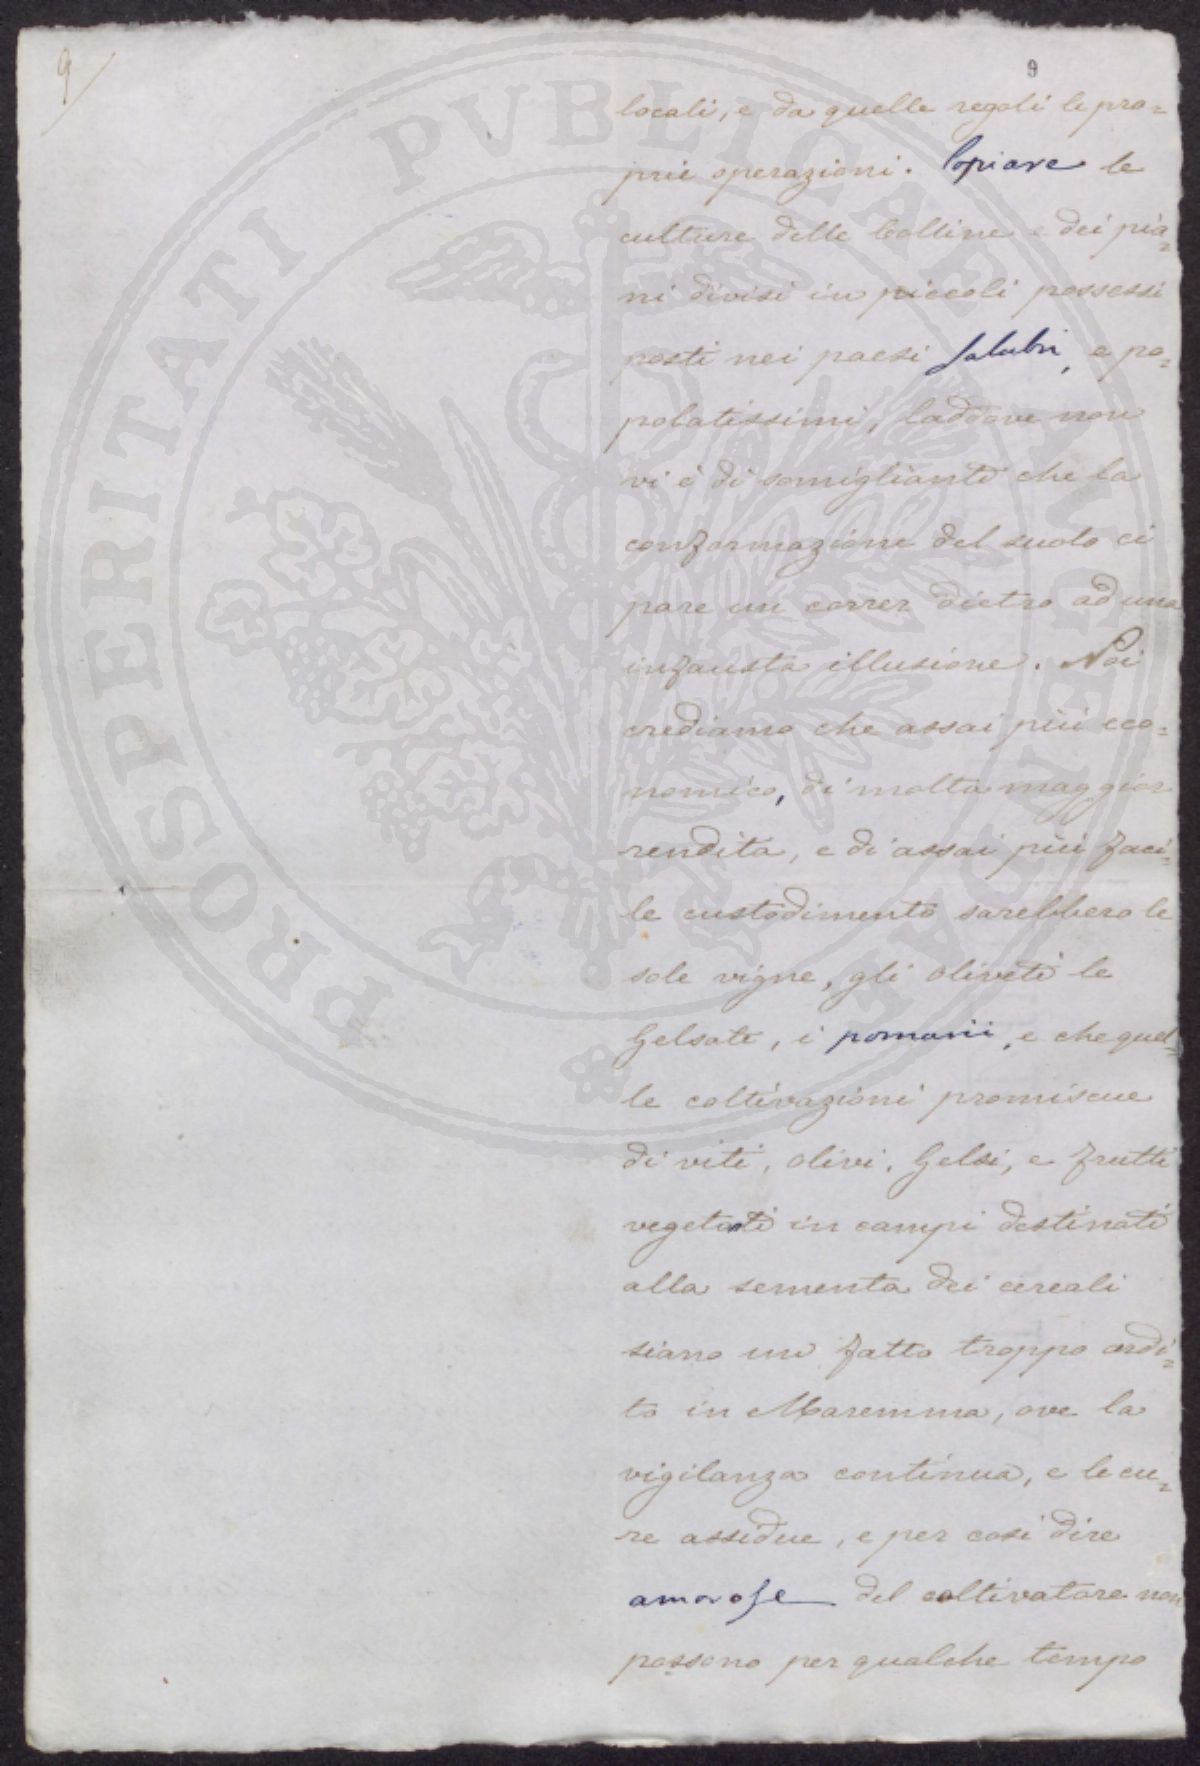 9
9
locali, e da quelle regoli le pro=
prie operazioni. Copiare le
culture delle Colline e dei pia=
ni divisi in piccoli possessi
posti nei paesi salubri, e po=
polatissimi, laddove non
vi è di somigliante che la
conformazione del suolo ci
pare un correr dietro ad una
infausta illusione. Noi
crediamo che assai più eco=
nomico, di molta maggior
rendita, e di assai più faci=
le custodimento sarebbero le
sole vigne, gli oliveti le
Gelsate, i pomarii, e che quel=
le coltivazioni promiscue
di viti, olivi, Gelsi, e frutti
vegetanti in campi destinati
alla sementa dei cereali
siano un fatto troppo ardi=
to in Maremma, ove la
vigilanza continua, e le cu=
re assidue, e per così dire
amorose del coltivatore non
possono per qualche tempo
PROSPERITATI PVBLICAE AVGENDAE